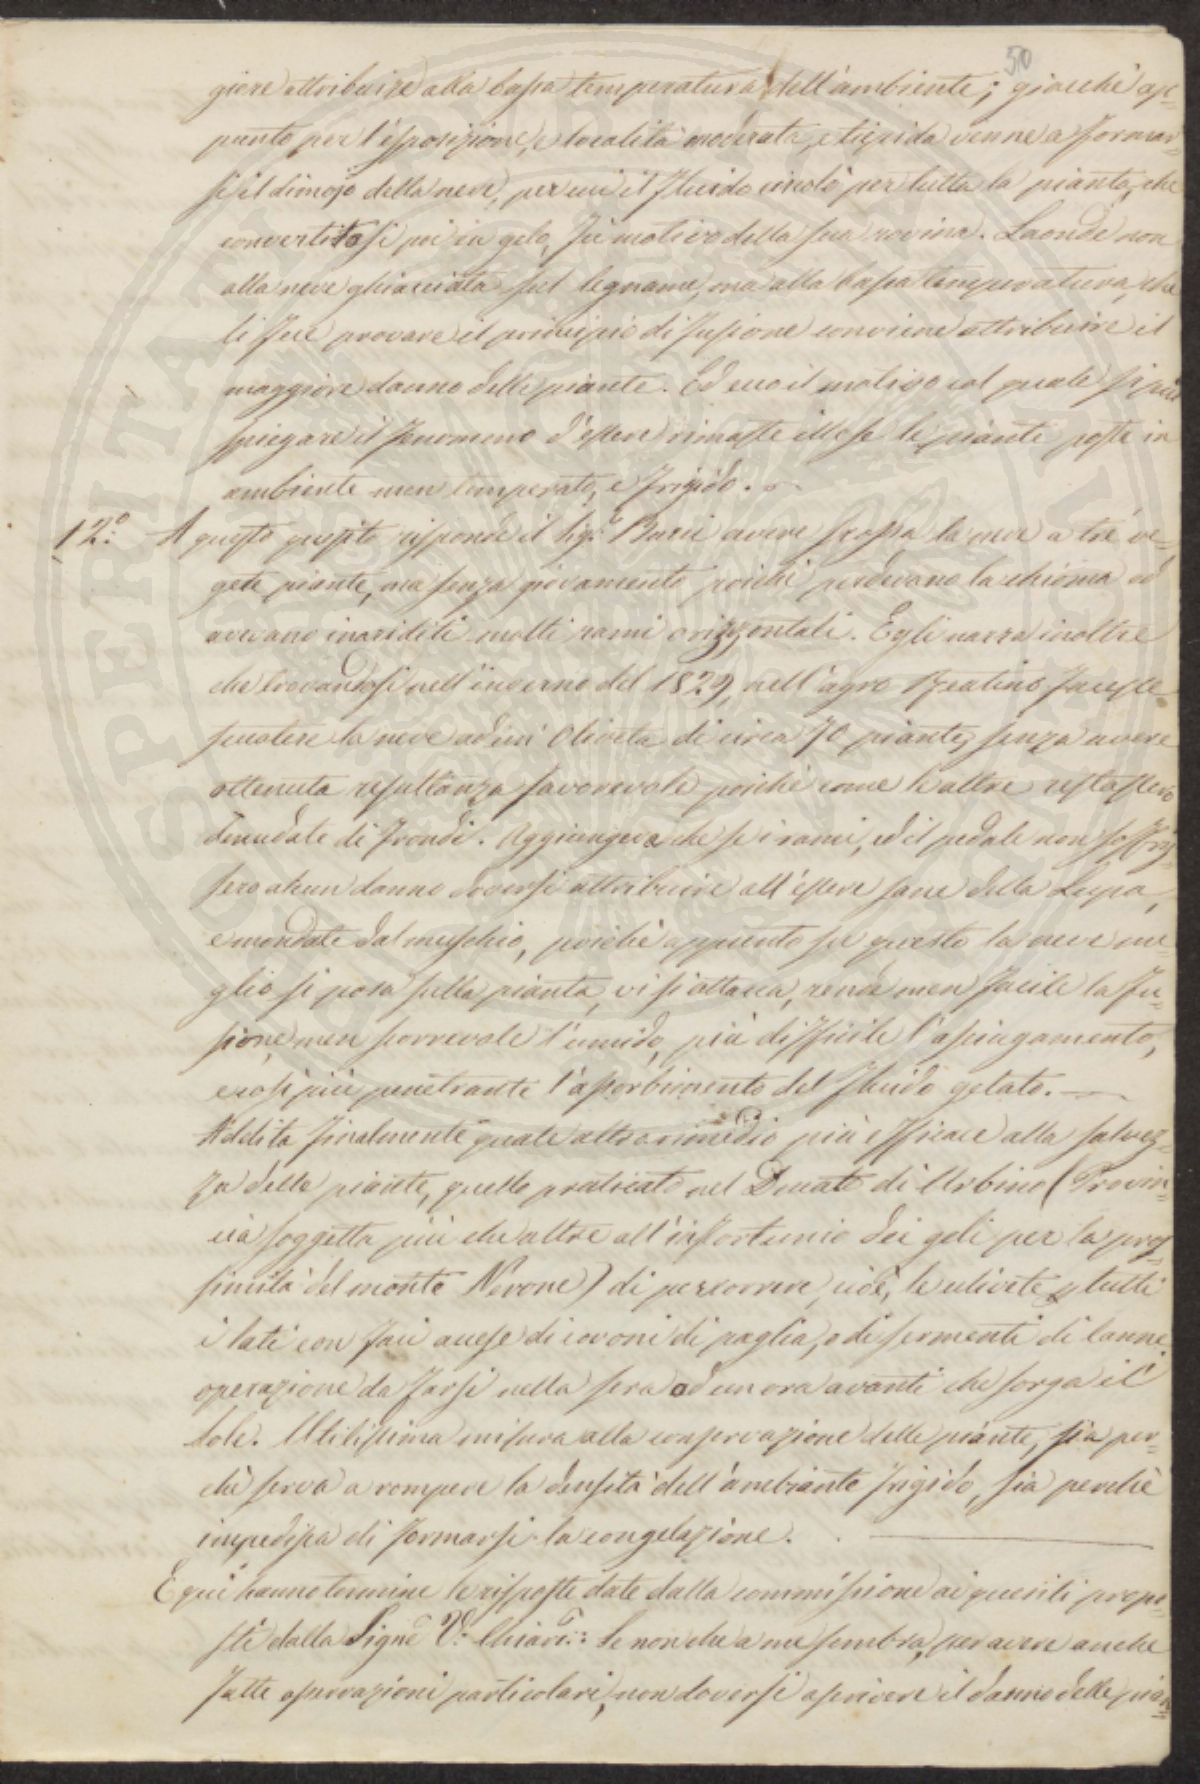 50
giore attribuire alla bassa temperatura dell'ambiente; giacchè ap-
punto per l'esposizione, e località moderata, e tiepida venne a formar-
si il dimojo della neve, per cui il fluido circolò per tutta la pianta, che
convertitosi poi in gelo, fu motivo della sua rovina. Laonde non
alla neve ghiacciata sul legname, ma alla bassa temperatura, che
li fece provare il principio di fusione conviene attribuire il
maggiore danno delle piante. Ed ecco il motivo col quale si può
spiegare il fenomeno d'essere rimaste illese le piante poste in
ambiente men temperato, e frigido.
12.° A questo quesito risponde il Sig.r avere scossa la neve a tre ve-
gete piante, ma senza giovamento poichè perdevano la chioma ed
avevano inariditi molti rami orizzontali. Egli narra inoltre
che trovandosi nell'inverno del 1829, nell'agro Reatino facesse
scuotere la neve ad un Oliveta di circa 70 piante, senza avere
ottenuta resultanza favorevole poichè come le altre restassero
denudate di frondi. Aggiungeva che se i rami, ed il pedale non soffris-
sero alcun danno doversi attribuire all'essere sane della Lupa,
e mondate dal muschio, poichè appunto su questo la neve me-
glio si posa sulla pianta, vi si attacca, rende men facile la fu-
sione, men scorrevole l'umido, più difficile l'asciugamento,
e così più penetrante l'assorbimento del fluido gelato.
Addita finalmente quale altro rimedio più efficace alla salvez-
za delle piante, quello praticato nel Ducato di Urbino (Provin-
cia soggetta più che altre all'infortunio dei geli per la pros-
simità del monte Nerone) di percorrere, cioè, le ulivete p tutti
i lati con faci accese di covoni di paglia, o di sermenti di canne
operazione da farsi nella sera ad un ora avanti che sorga il
sole. Utilissima misura alla conservazione delle piante, sia per-
chè serva a rompere la densità dell'ambiente frigido, sia perchè
impedisca di formarsi la congelazione.
E qui hanno termine le risposte date dalla commissione ai quesiti propo-
sti dalla Signe V. Chiar.: Se non che a me sembra, per avere anche
fatte osservazioni particolari, non doversi ascrivere il danno delle pian-